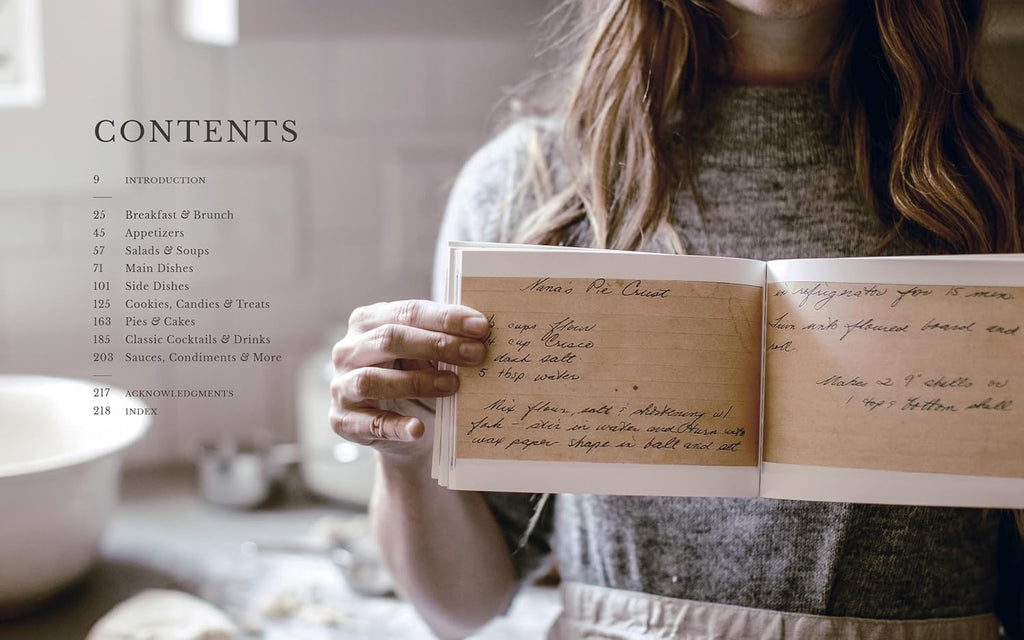 CONTENTS
9 INTRODUCTION
25 Breakfast & Brunch
45 Appetizers
57 Salads & Soups
71 Main Dishes
101 Side Dishes
125 Cookies, Candies & Treats
163 Pies & Cakes
185 Classic Cocktails & Drinks
203 Sauces, Condiments & More
217 ACKNOWLEDGMENTS
218 INDEX
Nana's Pie Crust
cups flour
cup Crisco
dash salt
5 tbsp water
Mix flour, salt & shortening w/
fork - stir in water and
wax paper shape in ball and
in refrigerator for 15 min.
Turn onto floured board and
roll.
Makes 2 9" shells or
1 top & bottom shell